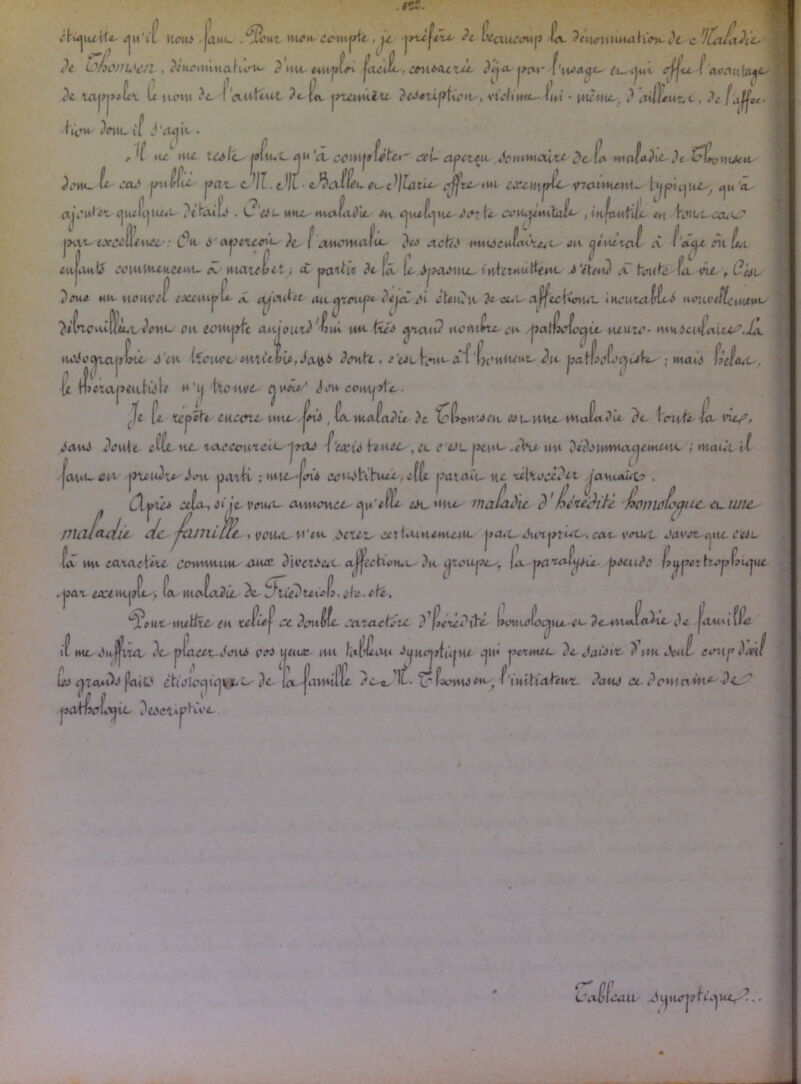 - 622 -
étiquette qu'il nous faut. Pour mon compte, je préfère de beaucoup la dénomination de « Maladie
de Thomsen », dénomination d'un emploi facile, consacrée déjà par l'usage et qui offre l'avantage
de rappeler le nom de l'auteur de la première description, victime lui-même, d'ailleurs, de l'affec-
tion dont il s'agit.
Il ne me reste plus qu'à compléter cet aperçu sommaire de la maladie de Thomsen
dont le cas publié par MM. Ballet et Marie offre un exemple vraiment typique, qu'à
ajouter quelques détails. C'est une maladie en quelque sorte congénitale, infantile en tous cas
par excellence: On s'aperçoit de l'anomalie des actes musculaires en général à l'âge où les
enfants commencent à marcher; à partir de là le spasme intermittent s'étend à toute la vie. C'est
donc un nouvel exemple à ajouter au groupe déjà si étendu de ces affections incurables nouvellement
débrouillées dont on compte aujourd'hui un très grand nombre en pathologie neuro-musculaire. La
nosographie s'en trouve enrichie, sans doute, c'est tout à l'honneur du pathologiste; mais hélas,
le thérapeutiste n'y trouve guère son compte.
Je le répète encore une fois, la maladie de Thomsen est une maladie de toute la vie,
sans doute elle ne raccourcit pas l'existence, et c'est peut-être un dédommagement; mais il
faut en prendre son parti; une fois constituée, elle paraît ne rétrocéder jamais.
Après cela, si je vous annonce qu'elle est une maladie d'hérédité homologue et une
maladie de famille, vous n'en serez certainement pas surpris, car vous savez que c'est
là un caractère commun aux diverses affections du groupe, la paralysie pseudo hypertrophique
par exemple, la maladie de Friedreich, etc. etc.
Pour mettre en relief ce double caractère d'hérédité homologue et de maladie de famille
il me suffira de placer sous vos yeux un tableau synoptique qui permet de saisir d'un seul coup d'œil
les grands faits étiologiques de la famille de M. Thomsen, l'initiateur dans ce domaine de
pathologie descriptive.
Tableau synoptique...